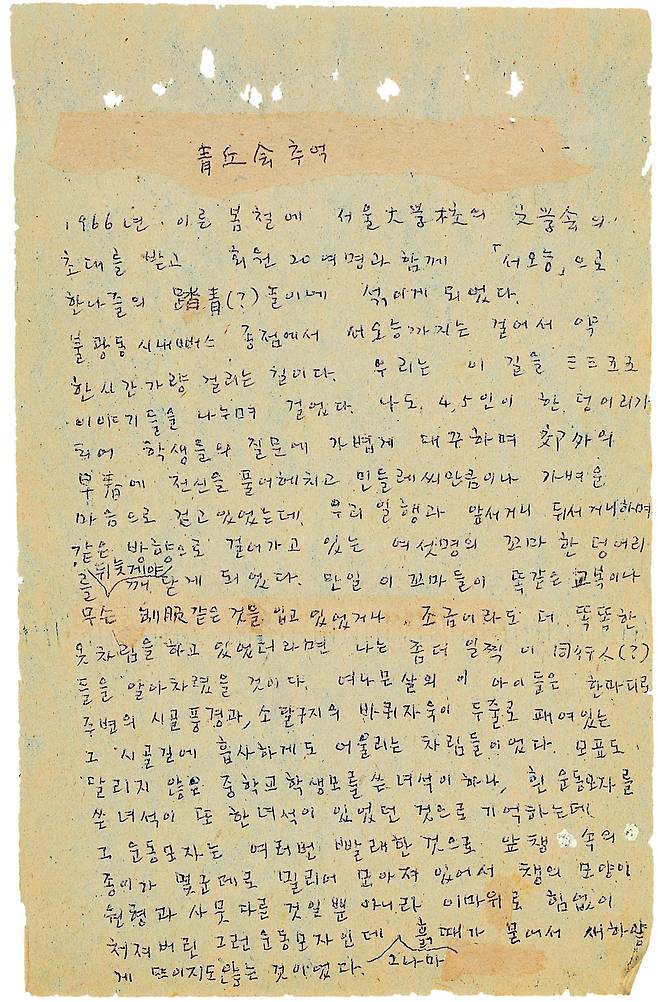 靑丘会 추억
1966년, 이른 봄철에 서울大學校의 文學会의
초대를 받고 회원 20여명과 함께 「서오능」으로
한나즐의 踏靑(?)놀이에 섞이게 되었다.
불광동 시내뻐스 종점에서 서오능까지는 걸어서 약
한시간가량 걸리는 길이다. 우리는 이 길을 三三五五
이야기들을 나누며 걸었다. 나도, 4,5인이 한 덩어리가
되어 학생들의 질문에 가볍게 대꾸하며 郊外의
早春에 전신을 풀어헤치고 민들레씨만큼이나 가벼운
마음으로 걷고 있었는데, 우리 일행과 앞서거니 뒤서거니하며
같은 방향으로 걸어가고 있는 여섯명의 꼬마 한 덩어리
를 뒤늦게야 깨닫게 되었다. 만일 이 꼬마들이 똑같은 교복이나
무슨 制服같은 것을 입고 있었거나, 조금이라도 더 똑똑한
옷차림을 하고 있었더라면 나는 좀더 일찍 이 同行人(?)
들을 알아차렸을 것이다. 여나믄살의 이 아이들은 한마디로
주변의 시골풍경과, 소달구지의 바퀴자욱이 두줄로 패여있는
그 시골길에 흡사하게도 어울리는 차림들이었다. 모표도
달리지 않은 중학교학생모를 쓴 녀석이 하나, 흰 운동모자를
쓴 녀석이 또 한녀석이 있었던 것으로 기억하는데,
그 운동모자는 여러번 빨래한 것으로 앞챙 속의
종이가 몇군데로 밀리어 모아져 있어서 챙의 모양이
원형과 사뭇 다를 것일 뿐 아니라 이마위로 힘없이
처져버린 그런 운동모자인데 그나마 흙때가 묻어서 새하얗
게 뜨이지도않는 것이었다.